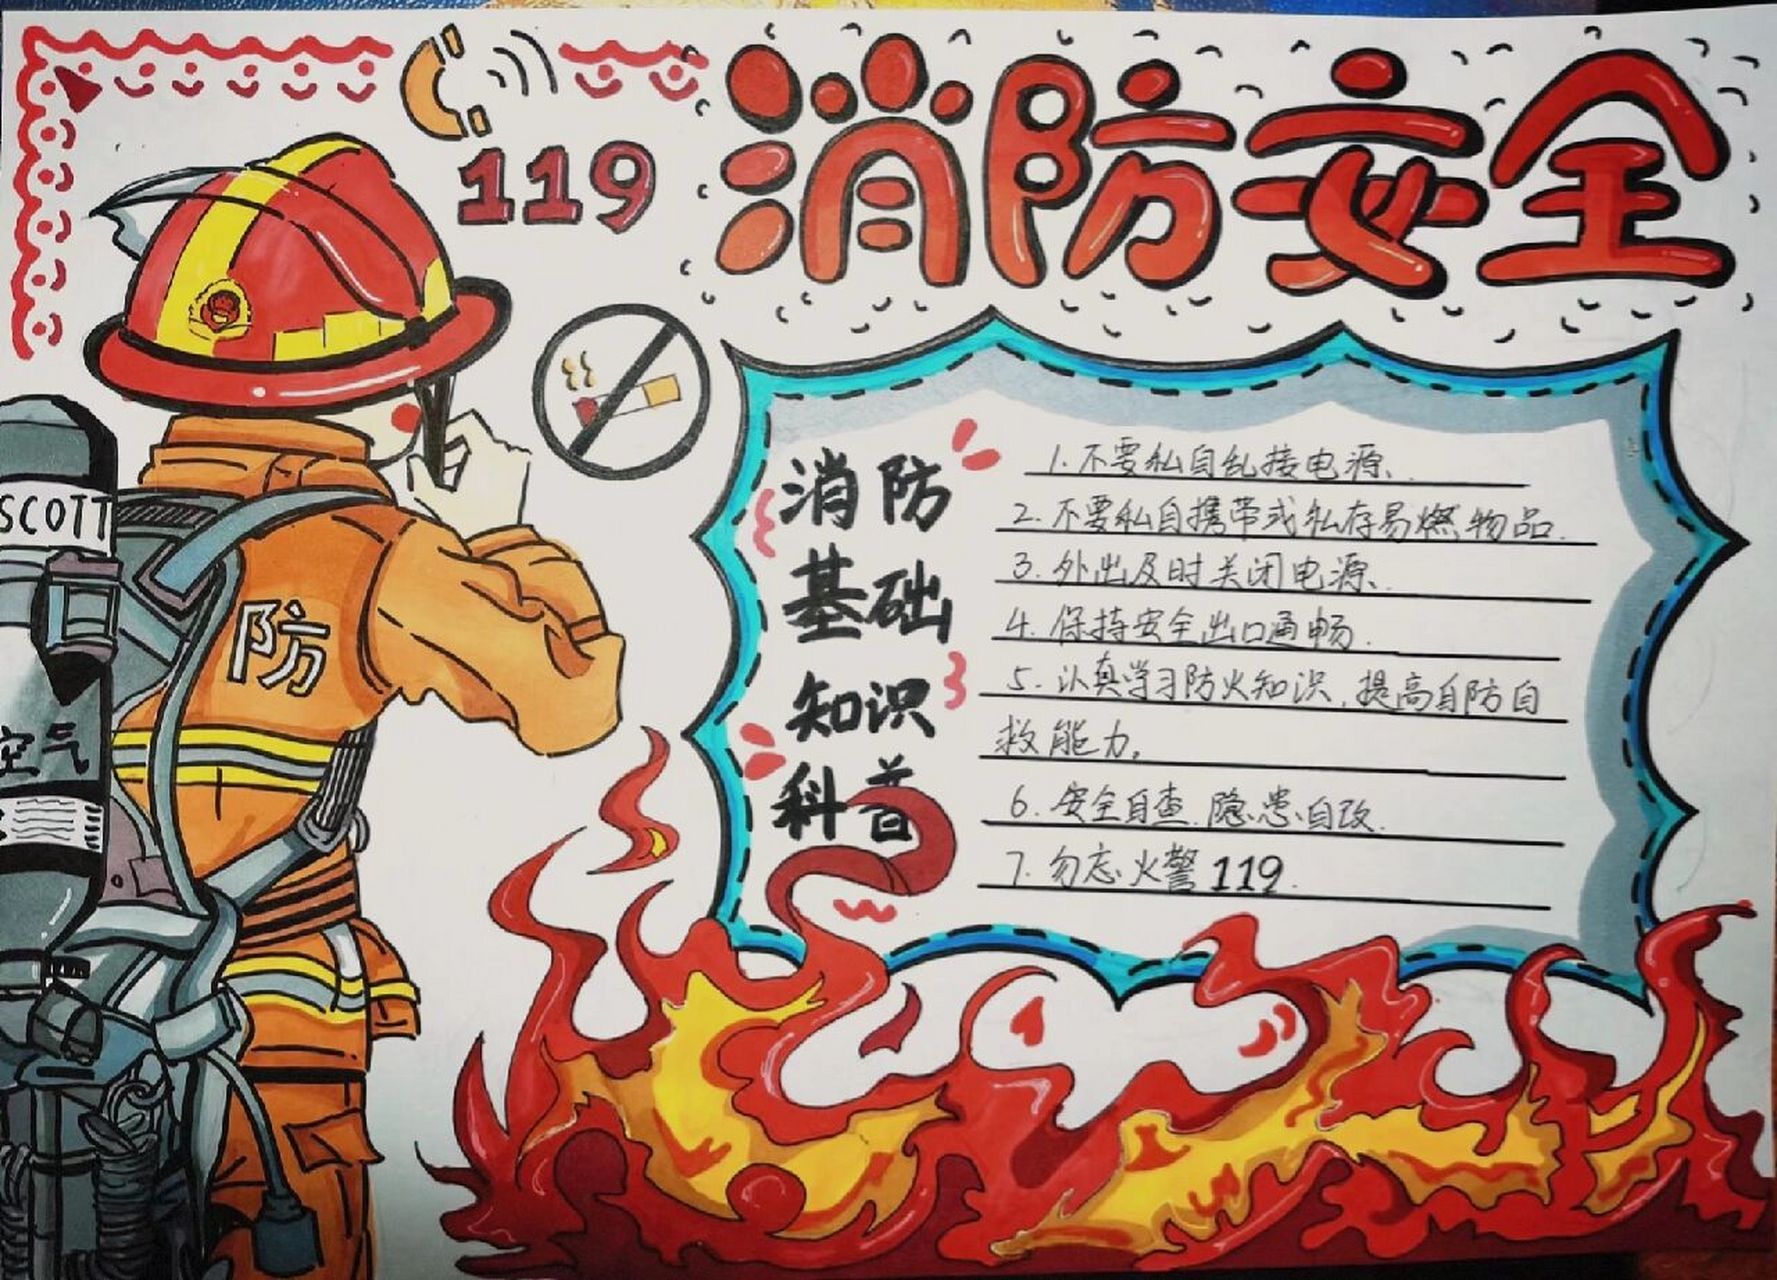 消防安全
119
SCOTT
防
空气
消防
基础
知识
科普
1.不要私自乱接电源、.
2.不要私自携带或私存易燃物品.
3.外出及时关闭电源、.
4.保持安全出口通畅.
5.认真学习防火知识,提高自防自
救能力。
6.安全自查.隐患自改.
7.勿忘火警119.